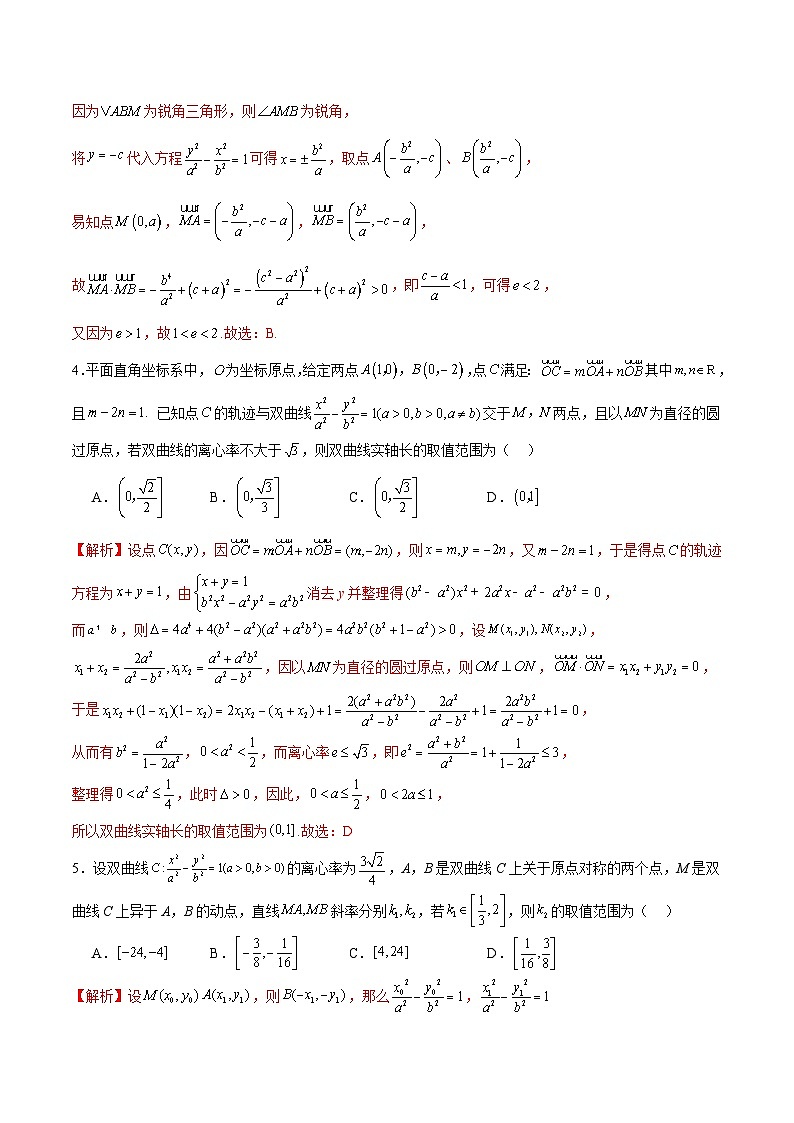 因为∨ABM为锐角三角形，则∠AMB为锐角，
将y=-c代入方程y²/a²-x²/b²=1可得x=±b²/a，取点A(-b²/a,-c)、B(b²/a,-c)，
易知点M(0,a)，MA=(-b²/a,-c-a)，MB=(b²/a,-c-a)，
故MA·MB=-b⁴/a²+(c+a)²=-(c²-a²)²/a²+(c+a)²>0，即(c-a)/a<1，可得e<2，
又因为e>1，故1<e<2.故选：B.
4.平面直角坐标系中，O为坐标原点,给定两点A(1,0)，B(0,-2),点C满足：OC=mOA+nOB其中m,n∈R，
且m-2n=1. 已知点C的轨迹与双曲线x²/a²-y²/b²=1(a>0,b>0,a≠b)交于M，N两点，且以MN为直径的圆
过原点，若双曲线的离心率不大于√3，则双曲线实轴长的取值范围为（ ）
A．(0,√2/2] B．(0,√3/3] C．(0,√3/2] D．(0,1]
【解析】设点C(x,y)，因OC=mOA+nOB=(m,-2n)，则x=m,y=-2n，又m-2n=1，于是得点C的轨迹
方程为x+y=1，由{x+y=1 b²x²-a²y²=a²b²消去y并整理得(b²-a²)x²+2a²x-a²-a²b²=0，
而a¹b，则Δ=4a⁴+4(b²-a²)(a²+a²b²)=4a²b²(b²+1-a²)>0，设M(x₁,y₁),N(x₂,y₂)，
x₁+x₂=2a²/(a²-b²),x₁x₂=(a²+a²b²)/(a²-b²)，因以MN为直径的圆过原点，则OM⊥ON，OM·ON=x₁x₂+y₁y₂=0，
于是x₁x₂+(1-x₁)(1-x₂)=2x₁x₂-(x₁+x₂)+1=2(a²+a²b²)/(a²-b²)-2a²/(a²-b²)+1=2a²b²/(a²-b²)+1=0，
从而有b²=a²/(1-2a²)，0<a²<1/2，而离心率e≤√3，即e²=(a²+b²)/a²=1+1/(1-2a²)≤3，
整理得0<a²≤1/4，此时Δ>0，因此，0<a≤1/2，0<2a≤1，
所以双曲线实轴长的取值范围为(0,1].故选：D
5．设双曲线C:x²/a²-y²/b²=1(a>0,b>0)的离心率为3√2/4，A，B是双曲线C上关于原点对称的两个点，M是双
曲线C上异于A，B的动点，直线MA,MB斜率分别k₁,k₂，若k₁∈[1/3,2]，则k₂的取值范围为（ ）
A．[-24,-4] B．[-3/8,-1/16] C．[4,24] D．[1/16,3/8]
【解析】设M(x₀,y₀) A(x₁,y₁)，则B(-x₁,-y₁)，那么x₀²/a²-y₀²/b²=1，x₁²/a²-y₁²/b²=1